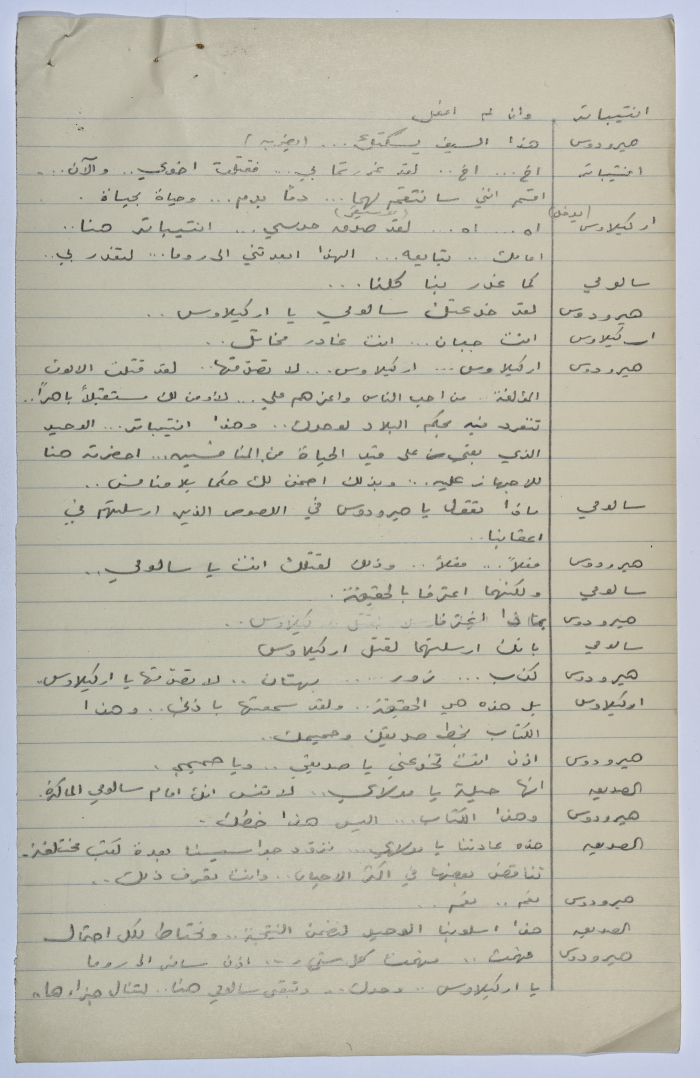 انتيباتر وان لم افعل
هيرودوس هذا السيف يسكتك ... (يضربه)
انتيباتر اخ ... اخ .. لقد غررتما بي .. فقتلت اخوي .. والآن ...
اقسم انني سانتقم لهما ... دماً بدم ... وحياة بحياة .
اركيلاوس (يدخل) اه ... اه ... لقد صدق حدسي ... انتيباتر هنا ..
امامك .. تبايعه ... الهذا ابعدتني الى روما ... لتغدر بي ..
سالومي كما غدر بنا كلنا ...
هيرودوس لقد خدعتك سالومي يا اركيلاوس ..
اركيلاوس انت جبان ... انت غادر مخاتل ..
هيرودوس اركيلاوس ... اركيلاوس ... لا تصدقها .. لقد قتلت الالوف
المؤلفة .. من احب الناس واعزهم علي ... لاؤمن لك مستقبلاً باهراً ..
تتفرد فيه بحكم البلاد لوحدك .. وهذا انتيباتر ... الوحيد
الذي بقي على قيد الحياة من المنافسين ... احضرته هنا
للاجهاز عليه ... وبذلك اضمن لك حكما بلا منافس ..
سالومي ماذا تقول يا هيرودوس في اللصوص الذين ارسلتهم في
اعقابنا ..
هيرودوس فعلاً ... فعلاً .. وذلك لقتلك انت يا سالومي ..
سالومي ولكنهما اعترفا بالحقيقة .
هيرودوس بماذا اعترفا
سالومي بانك ارسلتهما لقتل اركيلاوس
هيرودوس كذب ... زور .... بهتان .. لا تصدقها يا اركيلاوس ..
اركيلاوس بل هذه هي الحقيقة .. ولقد سمعتها باذني .. وهذا
الكتاب بخط صديقك وحميمك ..
هيرودوس اذن انت تخدعني يا صديقي .. ويا حميمي .
الصديق انها حيلة يا مولاي .. لا تنس انك امام سالومي الماكرة .
هيرودوس وهذا الكتاب ... اليس هذا خطك ..
الصديق هذه عادتنا يا مولاي ... نزود جواسيسنا بعدة كتب مختلفة ..
تناقض بعضها في اكثر الاحيان .. وانت تعرف ذلك ..
هيرودوس نعم .. نعم ..
الصديق هذا اسلوبنا الوحيد لنضمن النتيجة .. ونحتاط لكل احتمال
هيرودوس فهمت .. فهمت كل شيء .. اذن سافر الى روما
يا اركيلاوس .. وحدك .. وتبقى سالومي هنا .. لتنال جزاءها ..